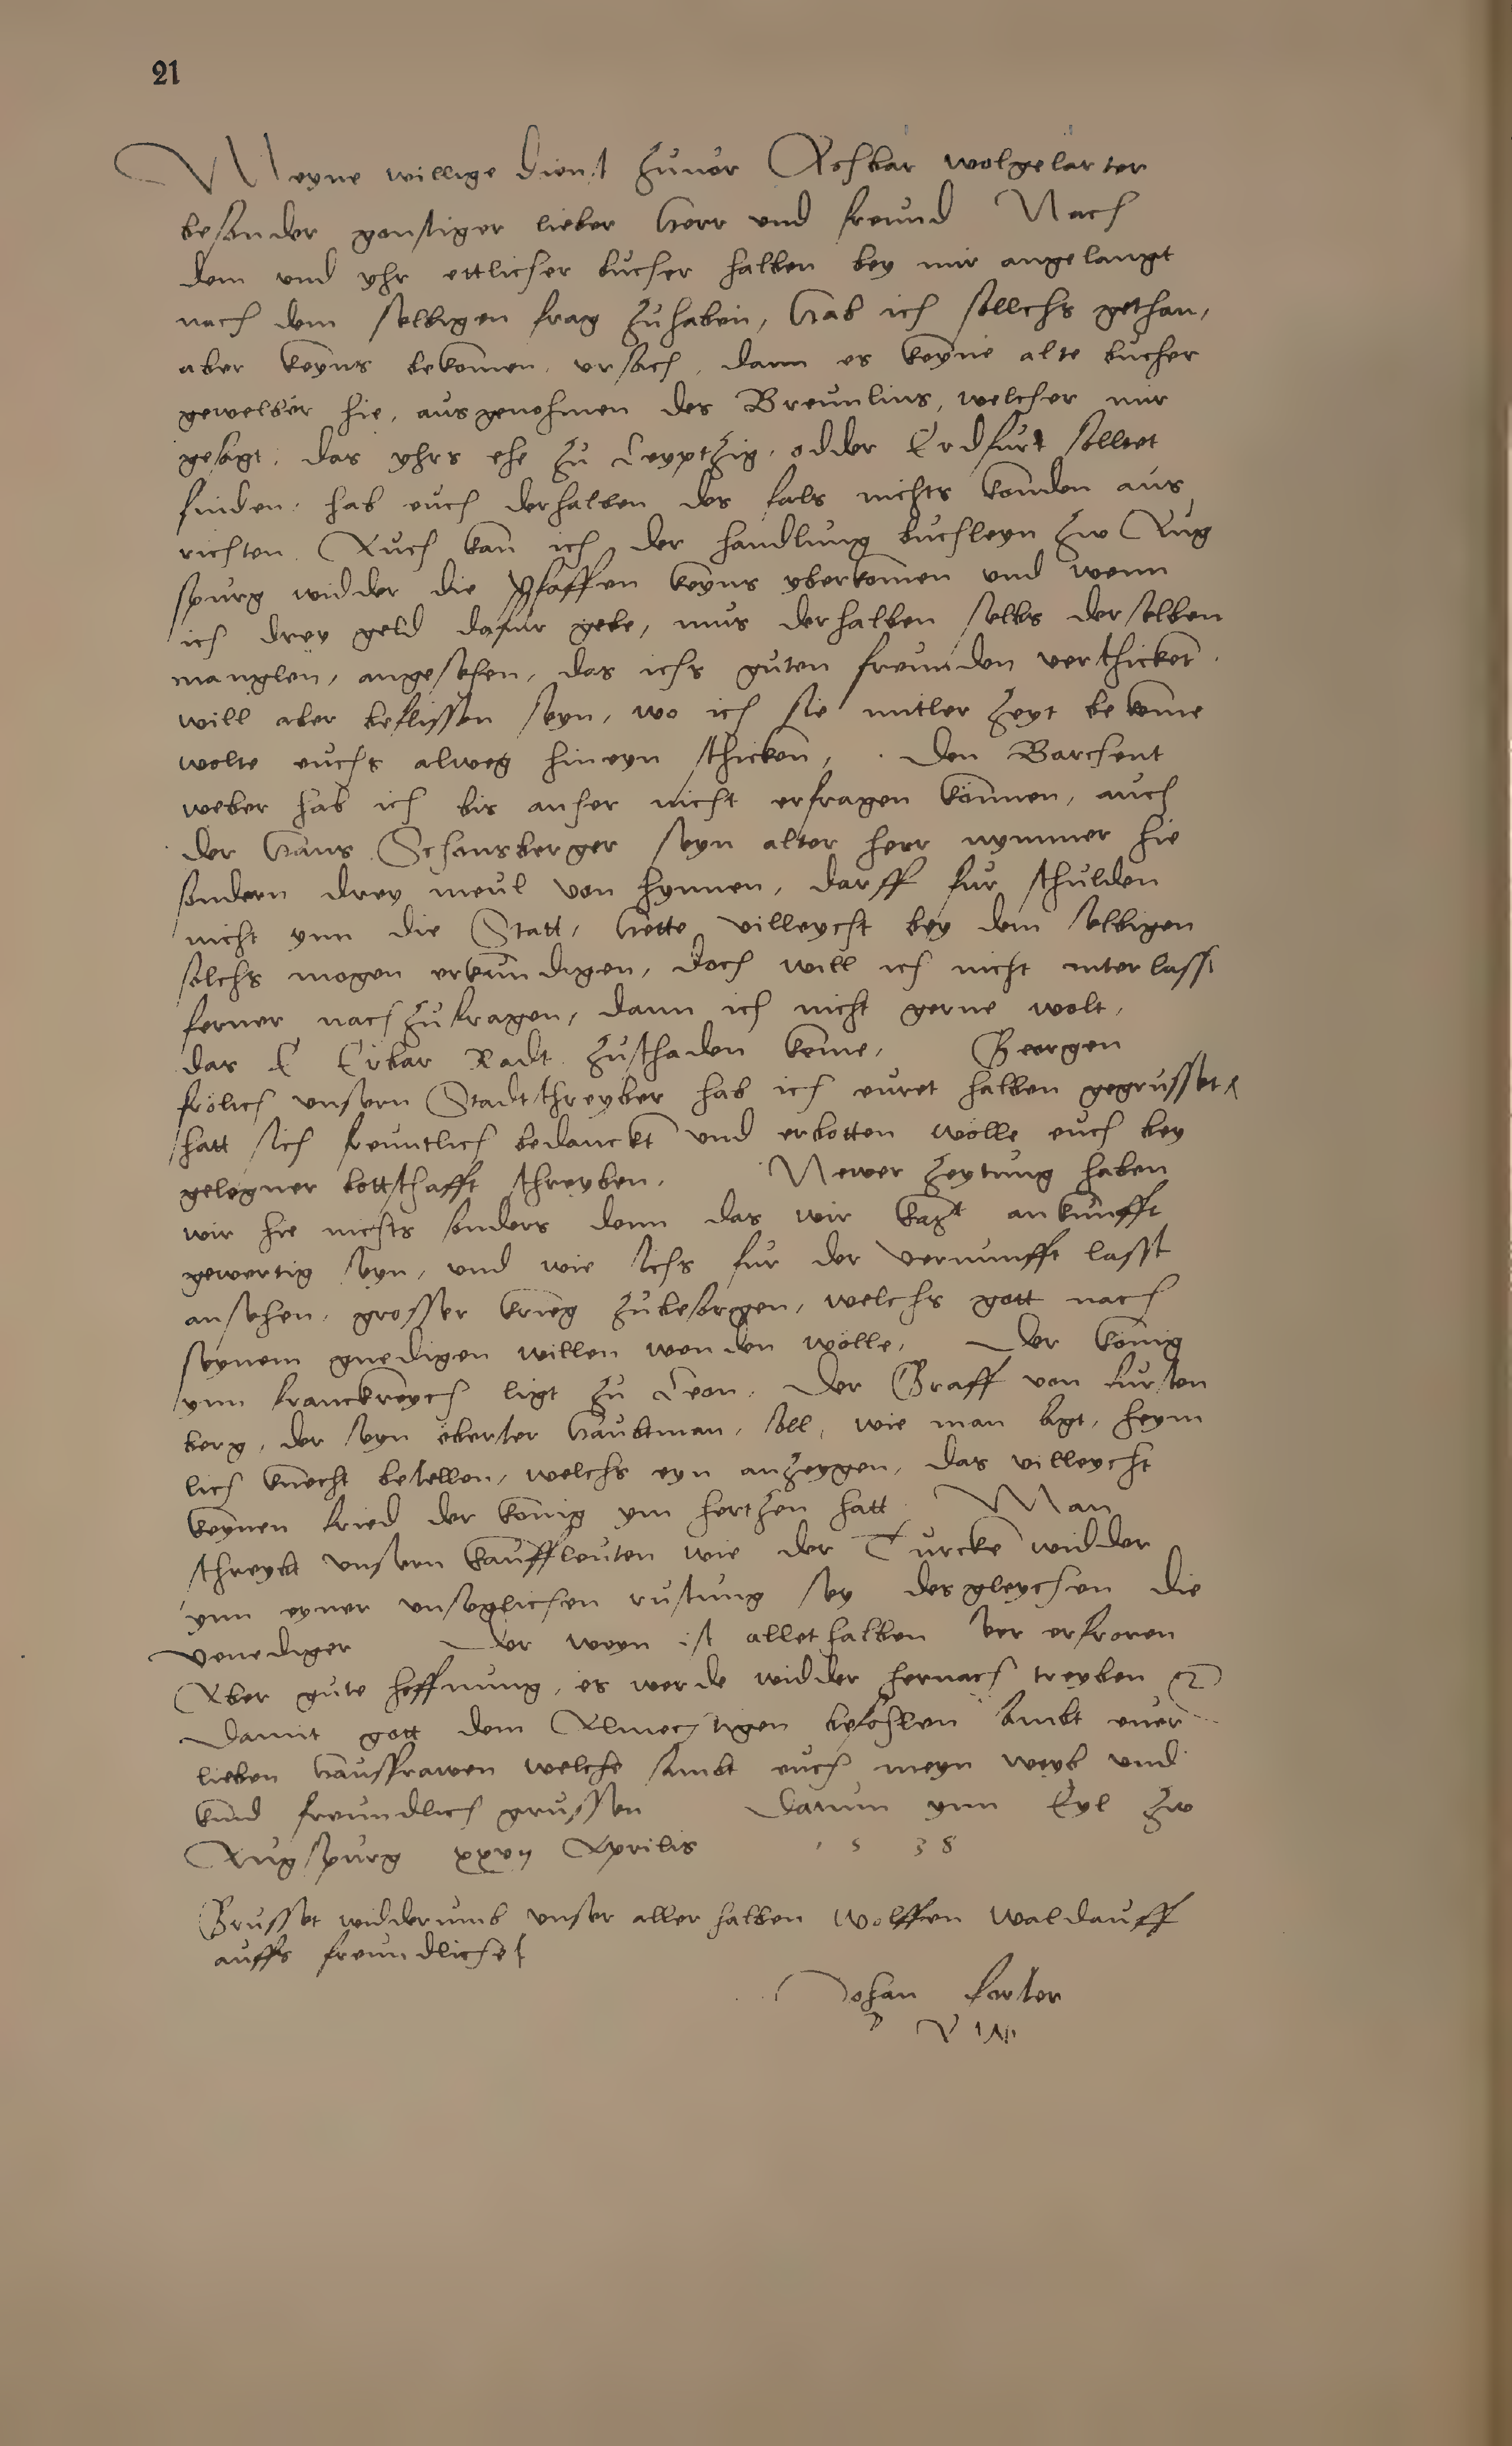 21
Meyne willige dienst zuuor Achbar wolgelarter
besonder gonstiger lieber herr und freund Nach
dem und yhr ettlicher bucher halben bey mir angelangt
nach dem selbigen frag zuhaben, hab ich sollchs gethan,
aber keyns bekomen, ursach, dann es keyne alte bucher
gewelber hie, ausgenohmen des Breunlins, welcher mir
gesagt, das yhrs ehe zu Leyptzig, odder Erdfurt solleet
finden, hab euch derhalben des fals nichts konden aus
richten. Auch kan ich der handlung buchleyn zw Aug
spurg widder die pfaffen keyns yberkomen und wenn
ich drey geld dafur gebe, mus derhalben selbs derselben
manglen, angesehen, das ichs guten freunden verschicket.
will aber beflissen seyn, wo ich sie mitler zeyt bekome
wolte euchs alweg hineyn schicken, Den Barchent
weber hab ich bis anher nicht erfragen können, auch
der Hans Schonsberger seyn alter herr nymmer hie
sondern drey meul von hynnen, darff fur schulden
nicht ynn die Statt, hette villeycht bey dem selbigen
solchs mogen erkundigen, doch will ich nicht unterlassen
ferner nachzufragen, dann ich nicht gerne wolt,
das E Erbar Radt zuschaden keme, Georgen
frölich unsern Stadtschreyber hab ich euret halben gegrusset,
hatt sich freuntlich bedanckt und erbotten wölle euch bey
gelegner bottschafft schreyben. Newer zeytung haben
wir hie nichts sonders denn das wir kayst ankunfft
gewertig seyn, und wie sichs fur der vernunfft lasst
ansehen, grosser krieg zubesorgen, welchs gott nach
seynem gnedigen willen wenden wölle, Der könig
ynn franckreych ligt zu Leon. Der Graff von fursten
berg, der seyn oberster haubtman, soll, wie man sagt, heym
lich knecht bestellen, welchs eyn anzeygen, das villeycht
keynen fried der könig ym hertzen hatt. Man
schreybt unsern kauffleuten wie der Turcke widder
ynn eyner unseglichen rustung sey desgleychen die
Venediger Der weyn ist allethalben ser erfroren
Aber gute hoffnung, es werde widder hernach treyben
Damit gott dem Almechtigen befohlen sambt euer
lieben haussfrawen welche sambt euch meyn weyb und
kind freundlich grussen Datum ynn Eyl zw
Augspurg xxvij Aprilis 1538
Grusset widderumb unser aller halben Wolffen Waldauff
auffs freundlichest
Johan forster
D